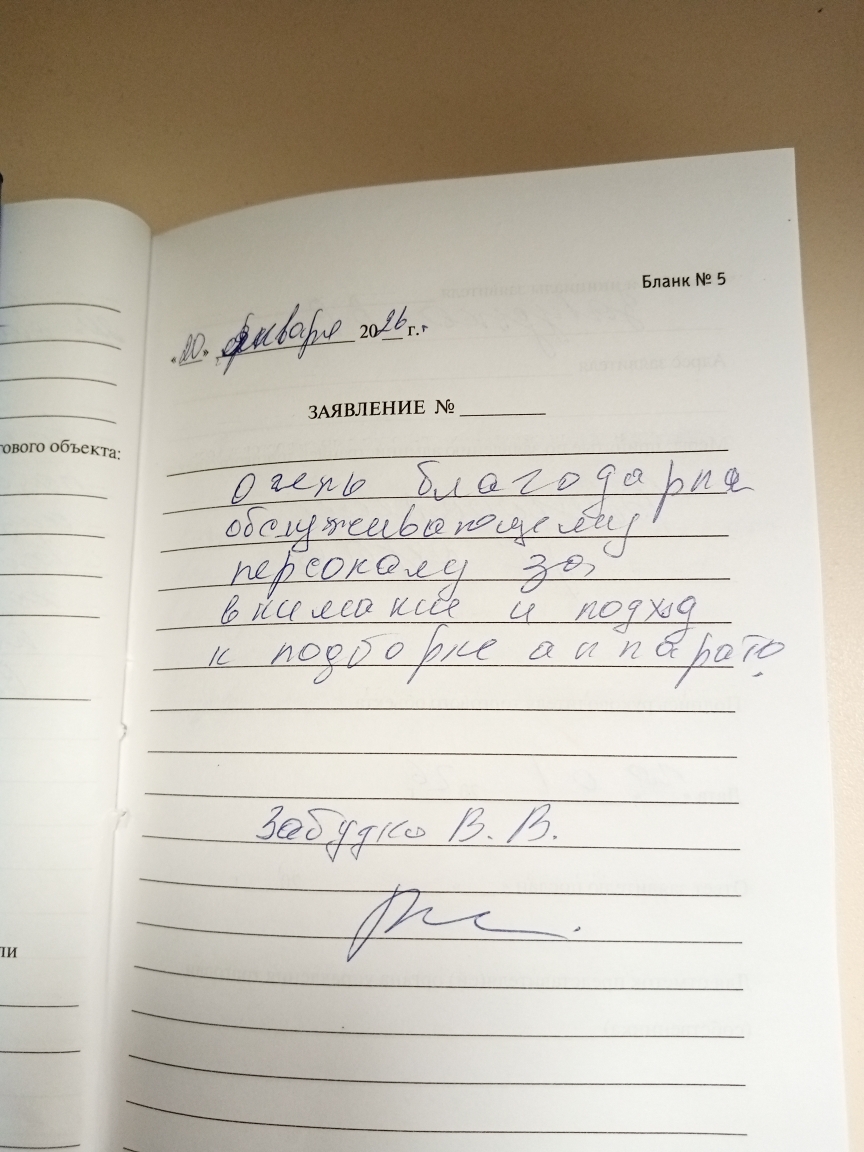 Бланк № 5
«20» января 2026 г.
ЗАЯВЛЕНИЕ № ________
тового объекта:
Очень благодарна
обслуживающему
персоналу за
внимание и подход
к подборке аппарата.
Забудко В. В.
ли